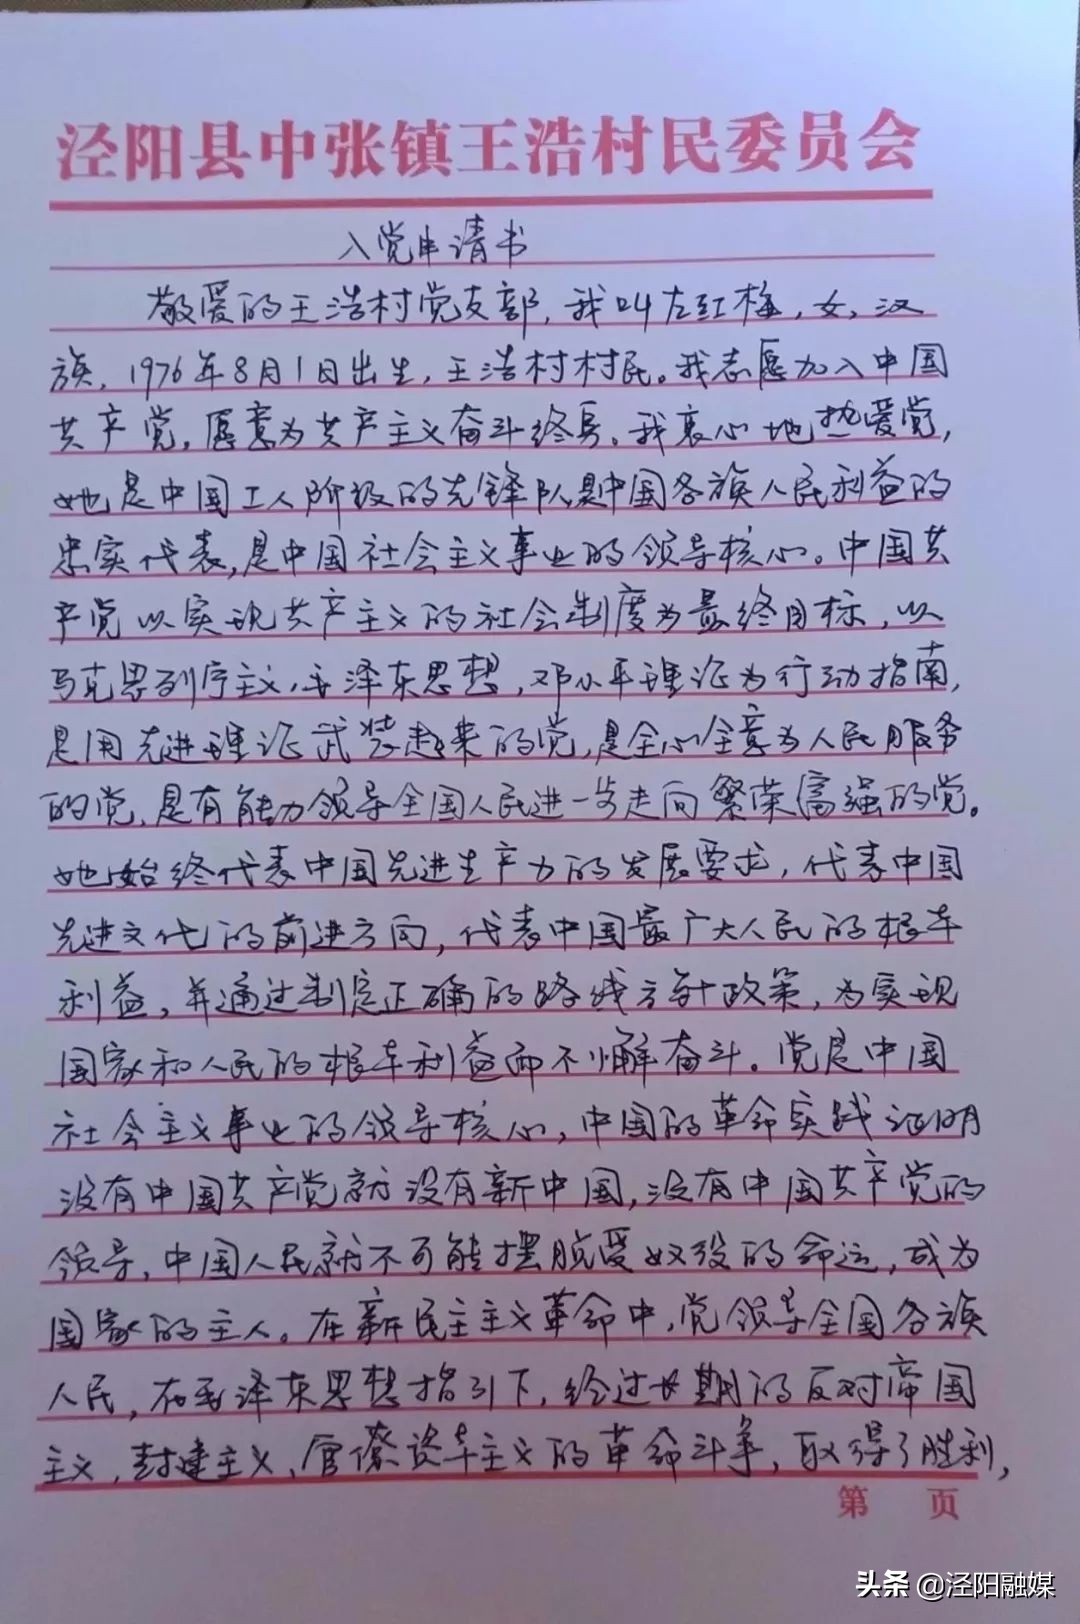 泾阳县中张镇王浩村民委员会
入党申请书
敬爱的王浩村党支部，我叫左红梅，女，汉
族，1976年8月1日出生，王浩村村民。我志愿加入中国
共产党，愿意为共产主义奋斗终身。我衷心地热爱党，
她是中国工人阶级的先锋队是中国各族人民利益的
忠实代表，是中国社会主义事业的领导核心。中国共
产党以实现共产主义的社会制度为最终目标，以
马克思列宁主义、毛泽东思想，邓小平理论为行动指南，
是用先进理论武装起来的党，是全心全意为人民服务
的党，是有能力领导全国人民进一步走向繁荣富强的党。
她始终代表中国先进生产力的发展要求，代表中国
先进文化的前进方向，代表中国最广大人民的根本
利益，并通过制定正确的路线方针政策，为实现
国家和人民的根本利益而不懈奋斗。党是中国
社会主义事业的领导核心，中国的革命实践证明
没有中国共产党就没有新中国，没有中国共产党的
领导，中国人民就不可能摆脱受奴役的命运，成为
国家的主人。在新民主主义革命中，党领导全国各族
人民，在毛泽东思想指引下，经过长期的反对帝国
主义、封建主义、官僚资本主义的革命斗争，取得了胜利，
第 页
头条 @泾阳融媒